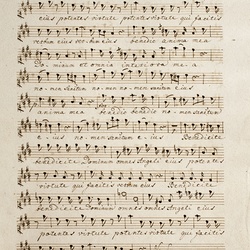 ejus potentes virtute potentes virtute qui facitis
verbum ejus verbum ejus benedic anima mea
Dominum et omnia interiora mea
nomen sanctum nomen nomen sanctum ejus
anima mea benedic benedic nomen sanctum
ejus nomen sanctum ejus Benedicite
benedicite Dominum omnes Angeli ejus potentes
virtute qui facitis verbum ejus Benedicite
benedicite Dominum omnes omnes Angeli ejus
potentes virtute potentes virtute qui facitis